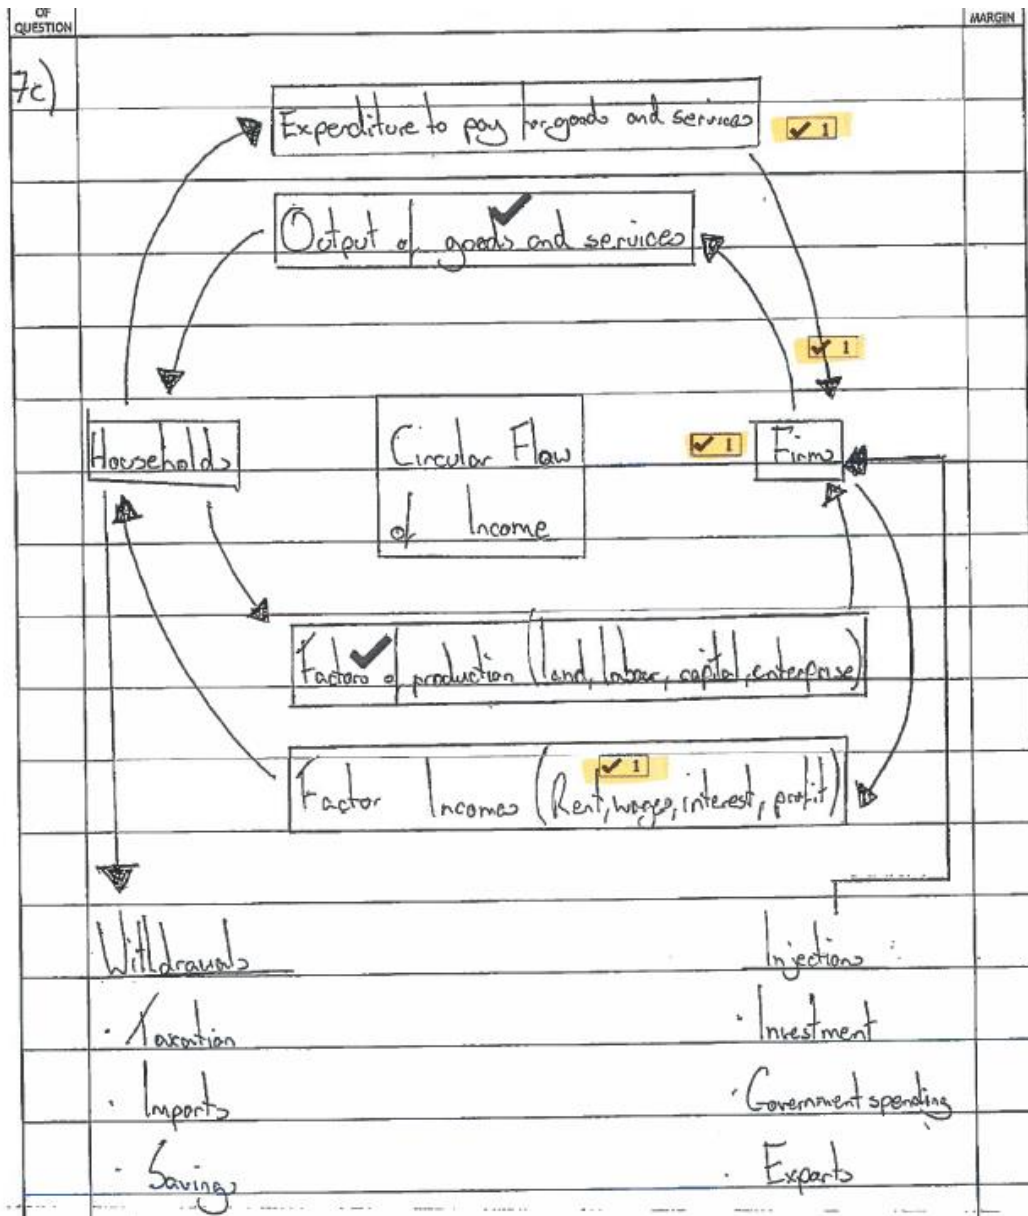 OF
QUESTION
MARGIN
7c)
Expenditure to pay for goods and services
✔ 1
Output of goods and services
✔ 1
Households
Circular Flow
of Income
✔ 1
Firms
Factors of production (land, labour, capital, enterprise)
✔ 1
Factor Incomes (Rent, wages, interest, profit)
Withdrawals
Injections
· Taxation
· Investment
· Imports
· Government spending
· Savings
· Exports